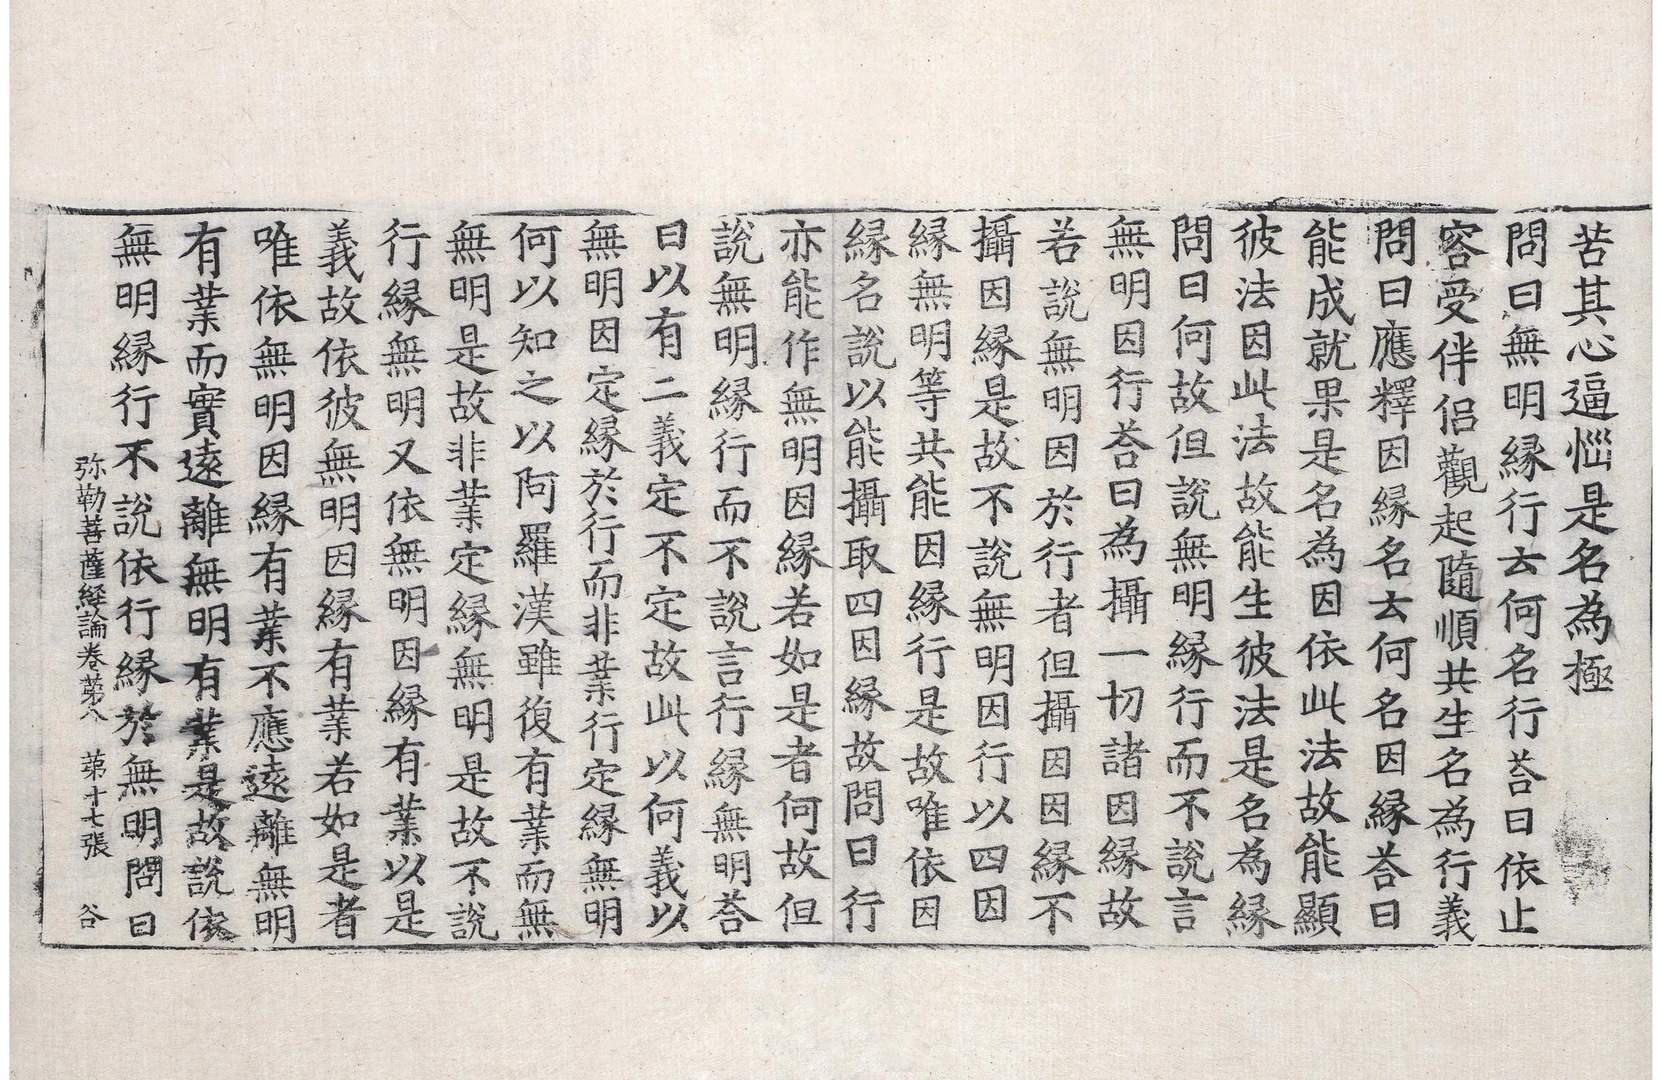 苦其心逼惱是名為極
問曰無明緣行云何名行荅曰依止
容受伴侶觀起隨順共生名為行義
問曰應釋因緣名云何名因緣荅曰
能成就果是名為因依此法故能顯
彼法因此法故能生彼法是名為緣
問曰何故但說無明緣行而不說言
無明因行荅曰為攝一切諸因緣故
若說無明因於行者但攝因因緣不
攝因緣是故不說無明因行以四因
緣無明等共能因緣行是故唯依因
緣名說以能攝取四因緣故問曰行
亦能作無明因緣若如是者何故但
說無明緣行而不說言行緣無明荅
曰以有二義定不定故此以何義以
無明因定緣於行而非業行定緣無明
何以知之以阿羅漢雖復有業而無
無明是故非業定緣無明是故不說
行緣無明又依無明因緣有業以是
義故依彼無明因緣有業若如是者
唯依無明因緣有業不應遠離無明
有業而實遠離無明有業是故說依
無明緣行不說依行緣於無明問曰
弥勒菩薩経論卷第八 第十七張 谷